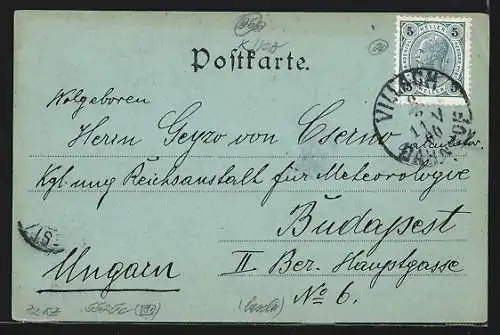 Postkarte.
5 HELLER 5
VILLACH
BAHNHOF
Wolgeboren
Herrn Geyzo von Cserno
Kgl. ung Reichsanstalt für Meteorologie
Budapest
Ungarn
II Bez. Hauptgasse
No 6.